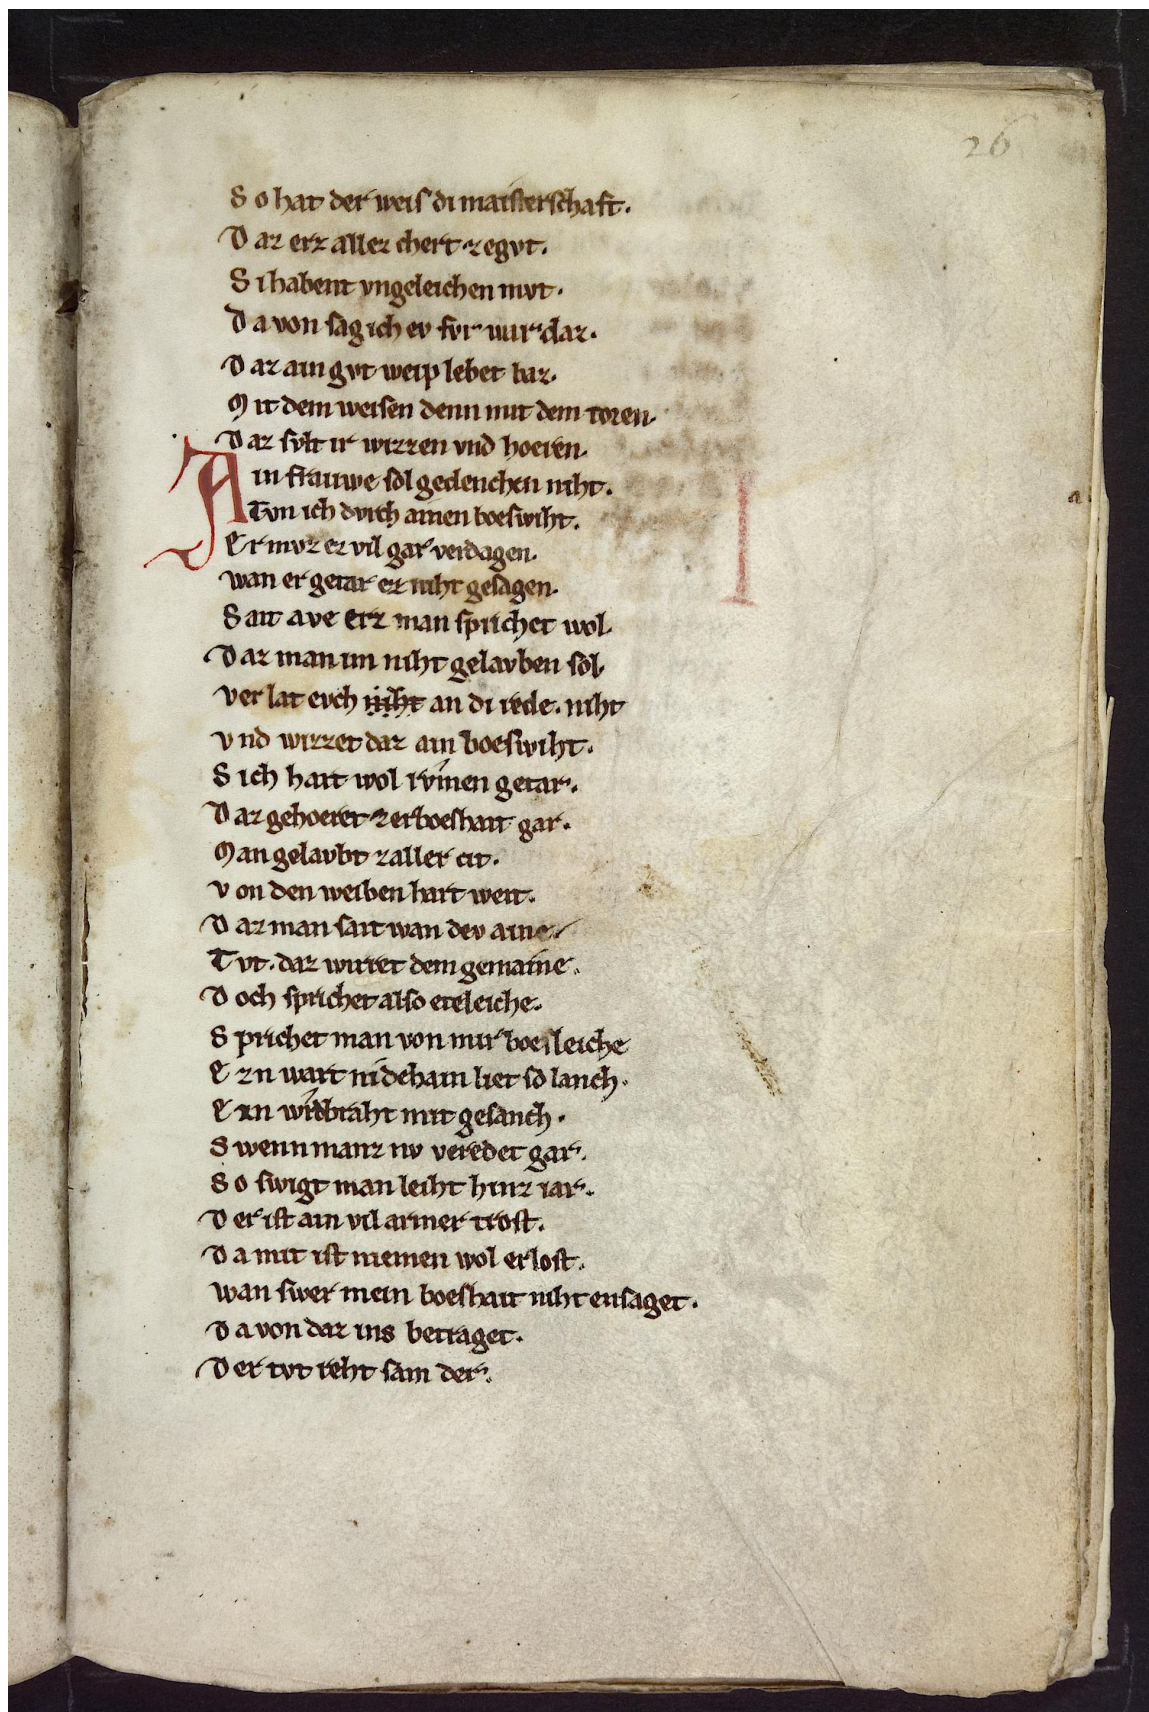 26
So hat der weis di maisterschaft.
Daz erz allez chert zegvt.
Si habent vngeleichen mvt.
Da von sag ich ev fvr wur daz.
Daz ain gvt weip lebet baz.
Mit dem weisen denn mit dem toren.
Daz svlt ir wizzen vnd hoeren.
Ain frauwe sol gedenchen niht.
Tvn ich dvrch ainen boeswiht.
Er mvz ez vil gar verdagen.
wan er getar ez niht gesagen.
Sait ave erz man sprichet wol.
Daz man im niht gelavben sol.
Verlat evch niht an di rede. niht
Vnd wizzet daz ain boeswiht.
Sich hart wol rvmen getar.
Daz gehoeret zerboeshait gar.
Man gelavbt zaller cit.
Von den weiben hart weit.
Daz man sait wan dev aine.
Tvt. daz wirret dem gemaine.
Doch sprichet also eteleiche.
Sprichet man von mir boesleiche
Ezn wart nideham liet so lanch.
Ezn wrdbraht mit gesanch.
Swenn manz nv veredet gar.
So swigt man leiht hinz iar.
Der ist ain vil armer trost.
Da mit ist niemen wol erlost.
wan swer mein boeshait niht ensaget.
Da von daz ins betraget.
Der tvt reht sam der.